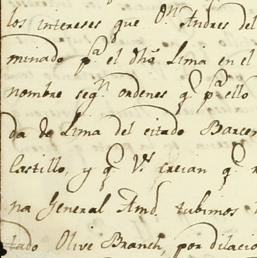 los intereses que Dn. Andres del
minado pa. el dho. Lima en el
nombre segn. ordenes q. pa. ello
da de Lima del citado Barcen
Castillo, y q. Vs. creian q.
na General Amd. tubimos
tado Olive Branch, por dilacio